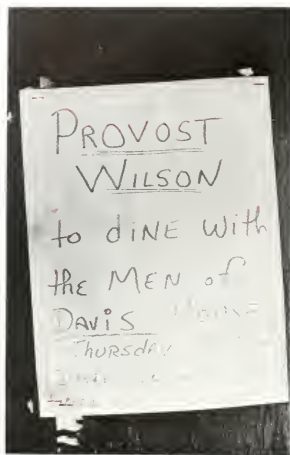 PROVOST
WILSON
to diNE With
the MEN of
DAViS House
THURSDAY